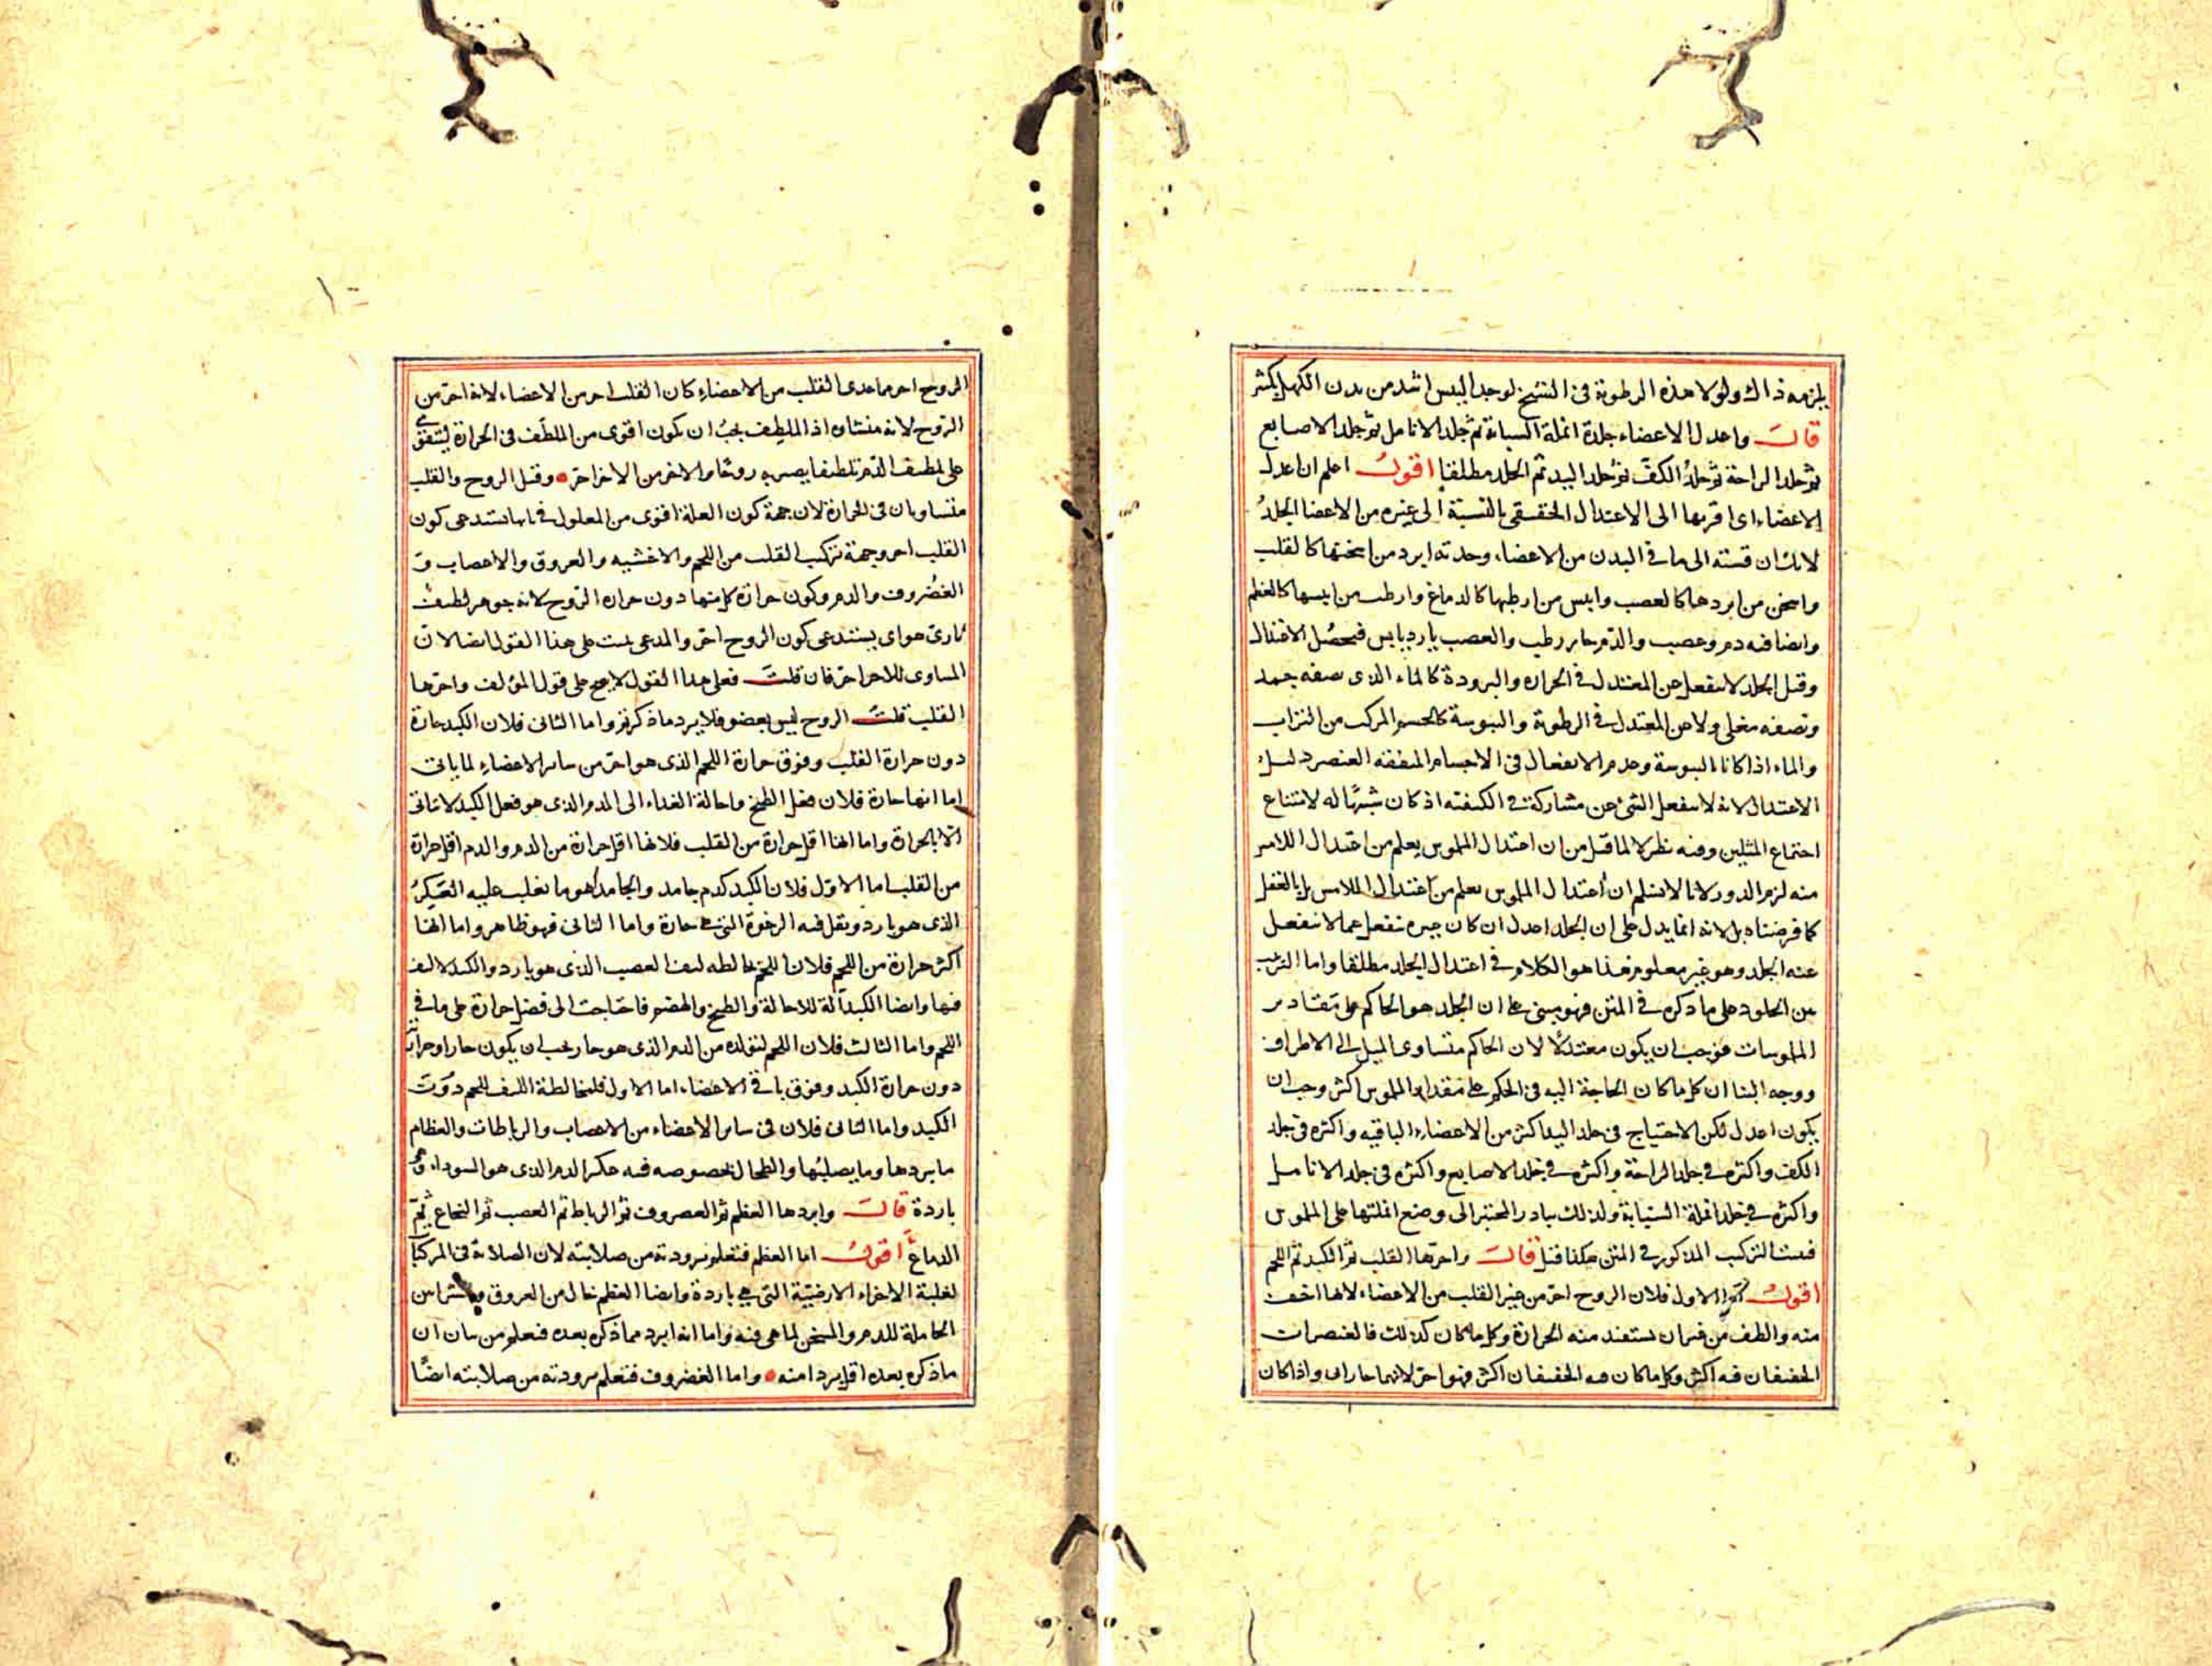 يلزمه ذاك ولولا هذه الرطوبة فى الشيخ لوجد اليبس اشد من بدن الكهل بكثير
قال واعدل الاعضاء جلدة انملة السبابة ثم جلد الانامل ثم جلد الاصابع
ثم جلد الراحة ثم جلد الكف ثم جلد اليد ثم الجلد مطلقا اقول اعلم ان اعدل
الاعضاء اى اقربها الى الاعتدال الحقيقى بالنسبة الى غيره من الاعضا الجلد
لانك ان قسته الى ما فى البدن من الاعضاء وجدته ابرد من اسخنها كالقلب
واسخن من ابردها كالعصب وايبس من ارطبها كالدماغ وارطب من ايبسها كالعظم
وايضا فيه دم وعصب والدم حار رطب والعصب بارد يابس فيحصل الاعتدال
وقيل الجلد لا ينفعل عن المعتدل فى الحراره والبرودة كالماء الذى نصفه جمد
ونصفه مغلى ولا عن المعتدل فى الرطوبة واليبوسة كالجسم المركب من التراب
والماء اذا كانا السوية وعدم الانفعال فى الاجسام المتفقه العنصر دليل
الاعتدال لانه لا ينفعل الشئ عن مشاركة فى الكيفيه اذ كان شبيها له لامتناع
اجتماع المثلين وفيه نظر لا لما قيل من ان اعتدال الملموس يعلم من اعتدال اللامس
منه لزم الدور لانا لا نسلم ان اعتدال الملموس يعلم من اعتدال اللامس بل بالفعل
كما فرضناه بل لانه انما يدل على ان الجلد اعدل ان كان جيره تنفعل عما لا ينفعل
عنه الجلد وهو غير معلوم هذا هو الكلام فى اعتدال الجلد مطلقا واما الترتيب
بين الجلود على ما ذكره فى المتن فهو مبنى على ان الجلد هو الحاكم على مقادير
الملموسات فوجب ان يكون معتدلا لان الحاكم متساوى الميل الى الاطراف
ووجه البنا ان كل ما كان الحاجة اليه فى الحكم على مقدار الملموس اكثر وجب ان
يكون اعدل لكن الاحتياج فى جلد اليد اكثر من الاعضاء الباقيه واكثره فى جلد
الكف واكثره فى جلد الراحة واكثره فى جلد الاصابع واكثره فى جلد الانامل
واكثره فى جلد انملة السبابة ولذلك يبادر المختبر الى وضع انملتها على الملموس
فيثبت التركيب المذكور فى المتن هكذا قيل قال واحرها القلب ثم الكبد ثم اللحم
اقول اما الاول فلان الروح احر من غير القلب من الاعضاء لانها اخف
منه والطف من غير ان يستفيد منه الحرارة وكل ما كان كذلك فالعنصران
الخفيفان فيه اكثر وكل ما كان فيه الخفيفان اكثر فهو احر لانهما حاران واذا كان
الروح احر مما عدى القلب من الاعضاء كان القلب احر من الاعضاء لانه احر من
الروح لانه منشاه اذ الملطف يجب ان يكون اقوى من الملطف فى الحرارة ليتقوى
على لطيف الدم تلطيفا يصير به روحا والاحر من الاحر احر وقيل الروح والقلب
متساويان فى الحرارة لان جهة كون العلة اقوى من المعلول فى بابها تستدعى كون
القلب احر وجهة تركيب القلب من اللحم والاغشيه والعروق والاعصاب و
الغضروف والدم وكون حرارة كل منها دون حراره الروح لانه جوهر لطيف
نارى هواى يستدعى كون الروح احر والمدعى يثبت على هذا القول ايضا لان
المساوى للاحر احر فان قلت فعلى هذا القول لا يصح على قول المؤلف واحرها
القلب قلت الروح ليس بعضو فلا يرد ما ذكرتم واما الثانى فلان الكبد حارة
دون حرارة القلب وفوق حرارة اللحم الذى هو احر من سائر الاعضاء لما ياتى
اما انها حارة فلان فعل الطبخ واحالة الغذاء الى الدم الذى هو فعل الكبد لا يتاتى
الا بالحرارة واما انها اقل حرارة من القلب فلانها اقل حرارة من الدم والدم اقل حرارة
من القلب اما الاول فلان الكبد كدم جامد والجامد هو ما يغلب عليه العكر
الذى هو بارد ويقل فيه الرغوة التى هى حارة واما الثانى فهو ظاهر واما انها
اكثر حرارة من اللحم فلان اللحم يخالطه ليف العصب الذى هو بارد والكبد لا ليف
فيها وايضا الكبد آلة للاحالة والطبخ والهضم فاحتاجت الى فضل حرارة على ما فى
اللحم واما الثالث فلان اللحم لتولده من الدم الذى هو حار يجب ان يكون حارا وحرارته
دون حرارة الكبد وفوق باقى الاعضاء اما الاول فلمخالطة الليف اللحم دون
الكبد واما الثانى فلان فى سائر الاعضاء من الاعصاب والرباطات والعظام
ما يبردها وما يصلبها والطحال بخصوصه فيه عكر الدم الذى هو السوداء وهى
باردة قال وابردها العظم ثم الغضروف ثم الرباط ثم العصب ثم النخاع ثم
الدماغ اقول اما العظم فتعلم برودته من صلابته لان الصلابة فى المركبات
لغلبة الاجزاء الارضية التى هى باردة وايضا العظم خال من العروق والشرايين
الحاملة للدم والمسخن لما هى فيه واما انه ابرد مما ذكره بعده فتعلم من بيان ان
ما ذكره بعده اقل بردا منه واما الغضروف فتعلم برودته من صلابته ايضا